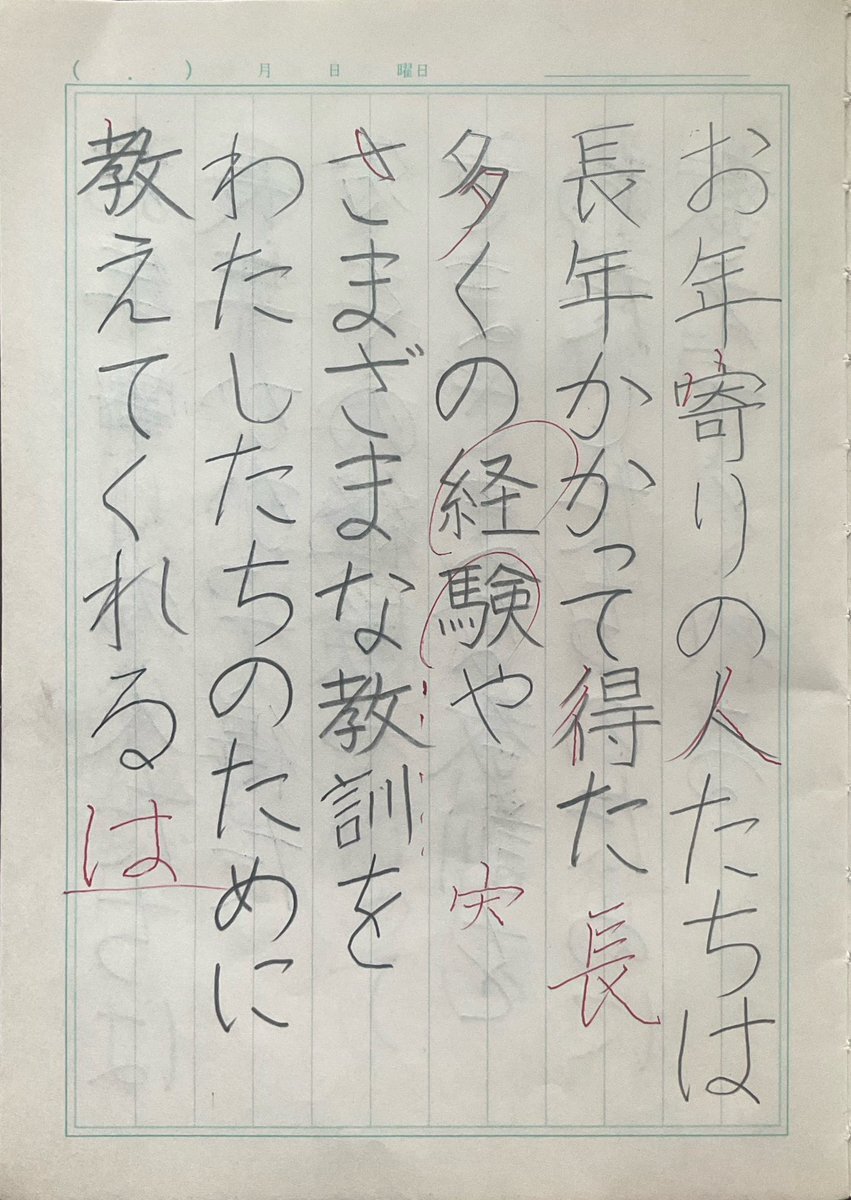 ( . ) 月 日 曜日
お年寄りの人たちは
長年かかって得た 長
多くの経験や
さまざまな教訓を
わたしたちのために
教えてくれる は